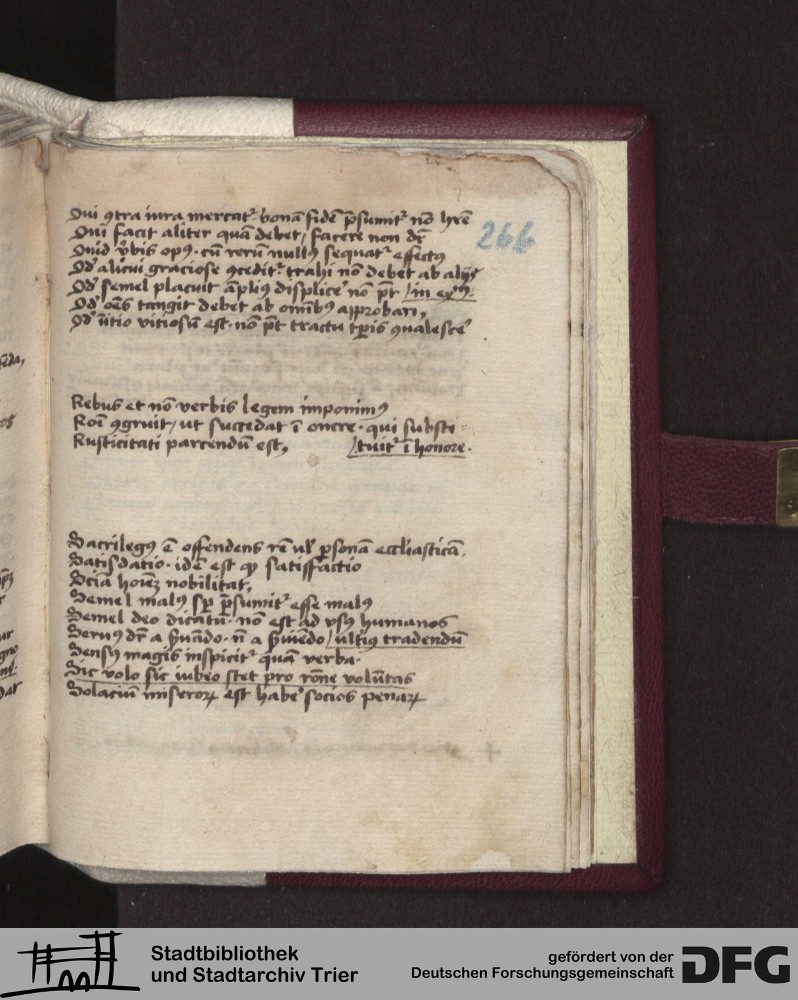 Qui ꝯtra iura mercatᷣ bonā fidē p̄sumitᷣ nō hr̄e
Qui facit aliter quā debet / facere non dr̄
266
Quid v̄bis opꝰ · cū rerū nullꝰ sequatᷣ effectꝰ
Qd̓ alicui graciose ꝯceditᷣ trahi nō debet ab alijs
Qd̓ semel placuit āpliꝰ displice̓ nō pt̄
Qd̓ oēs tangit debet ab omībꝰ approbari,
Qd̓ īitio vitiosū est · nō pt̄ tractu tp̄is ꝯualesce̓
Rebus et nō verbis legem imponimꝰ
Rōi ꝯgruit / ut succedat ī onere · qui substi-
Rusticitati parcendū est, /tuitᷣ ī honore.
Sacrilegꝰ ē offendens rē ul̓ ꝑsonā eccl̓iasticā.
Satisdatio · idē est qꝫ satisfactio
Sciā hoīeꝫ nobilitat,
Semel malꝰ sp̄ p̄sumitᷣ esse malꝰ
Semel deo dicatū · nō est ad vsꝰ humanos
Seruꝰ dr̄ a s̄uādo · n̄ a s̄uiēdo /ulteriꝰ tradendū
Sensꝰ magis inspicitᷣ quā verba·
Sic volo sic iubeo stet pro rōne volūtas
Solaciū miseroꝝ est habe̓ socios penaꝝ
Stadtbibliothek
und Stadtarchiv Trier
gefördert von der
Deutschen Forschungsgemeinschaft
DFG